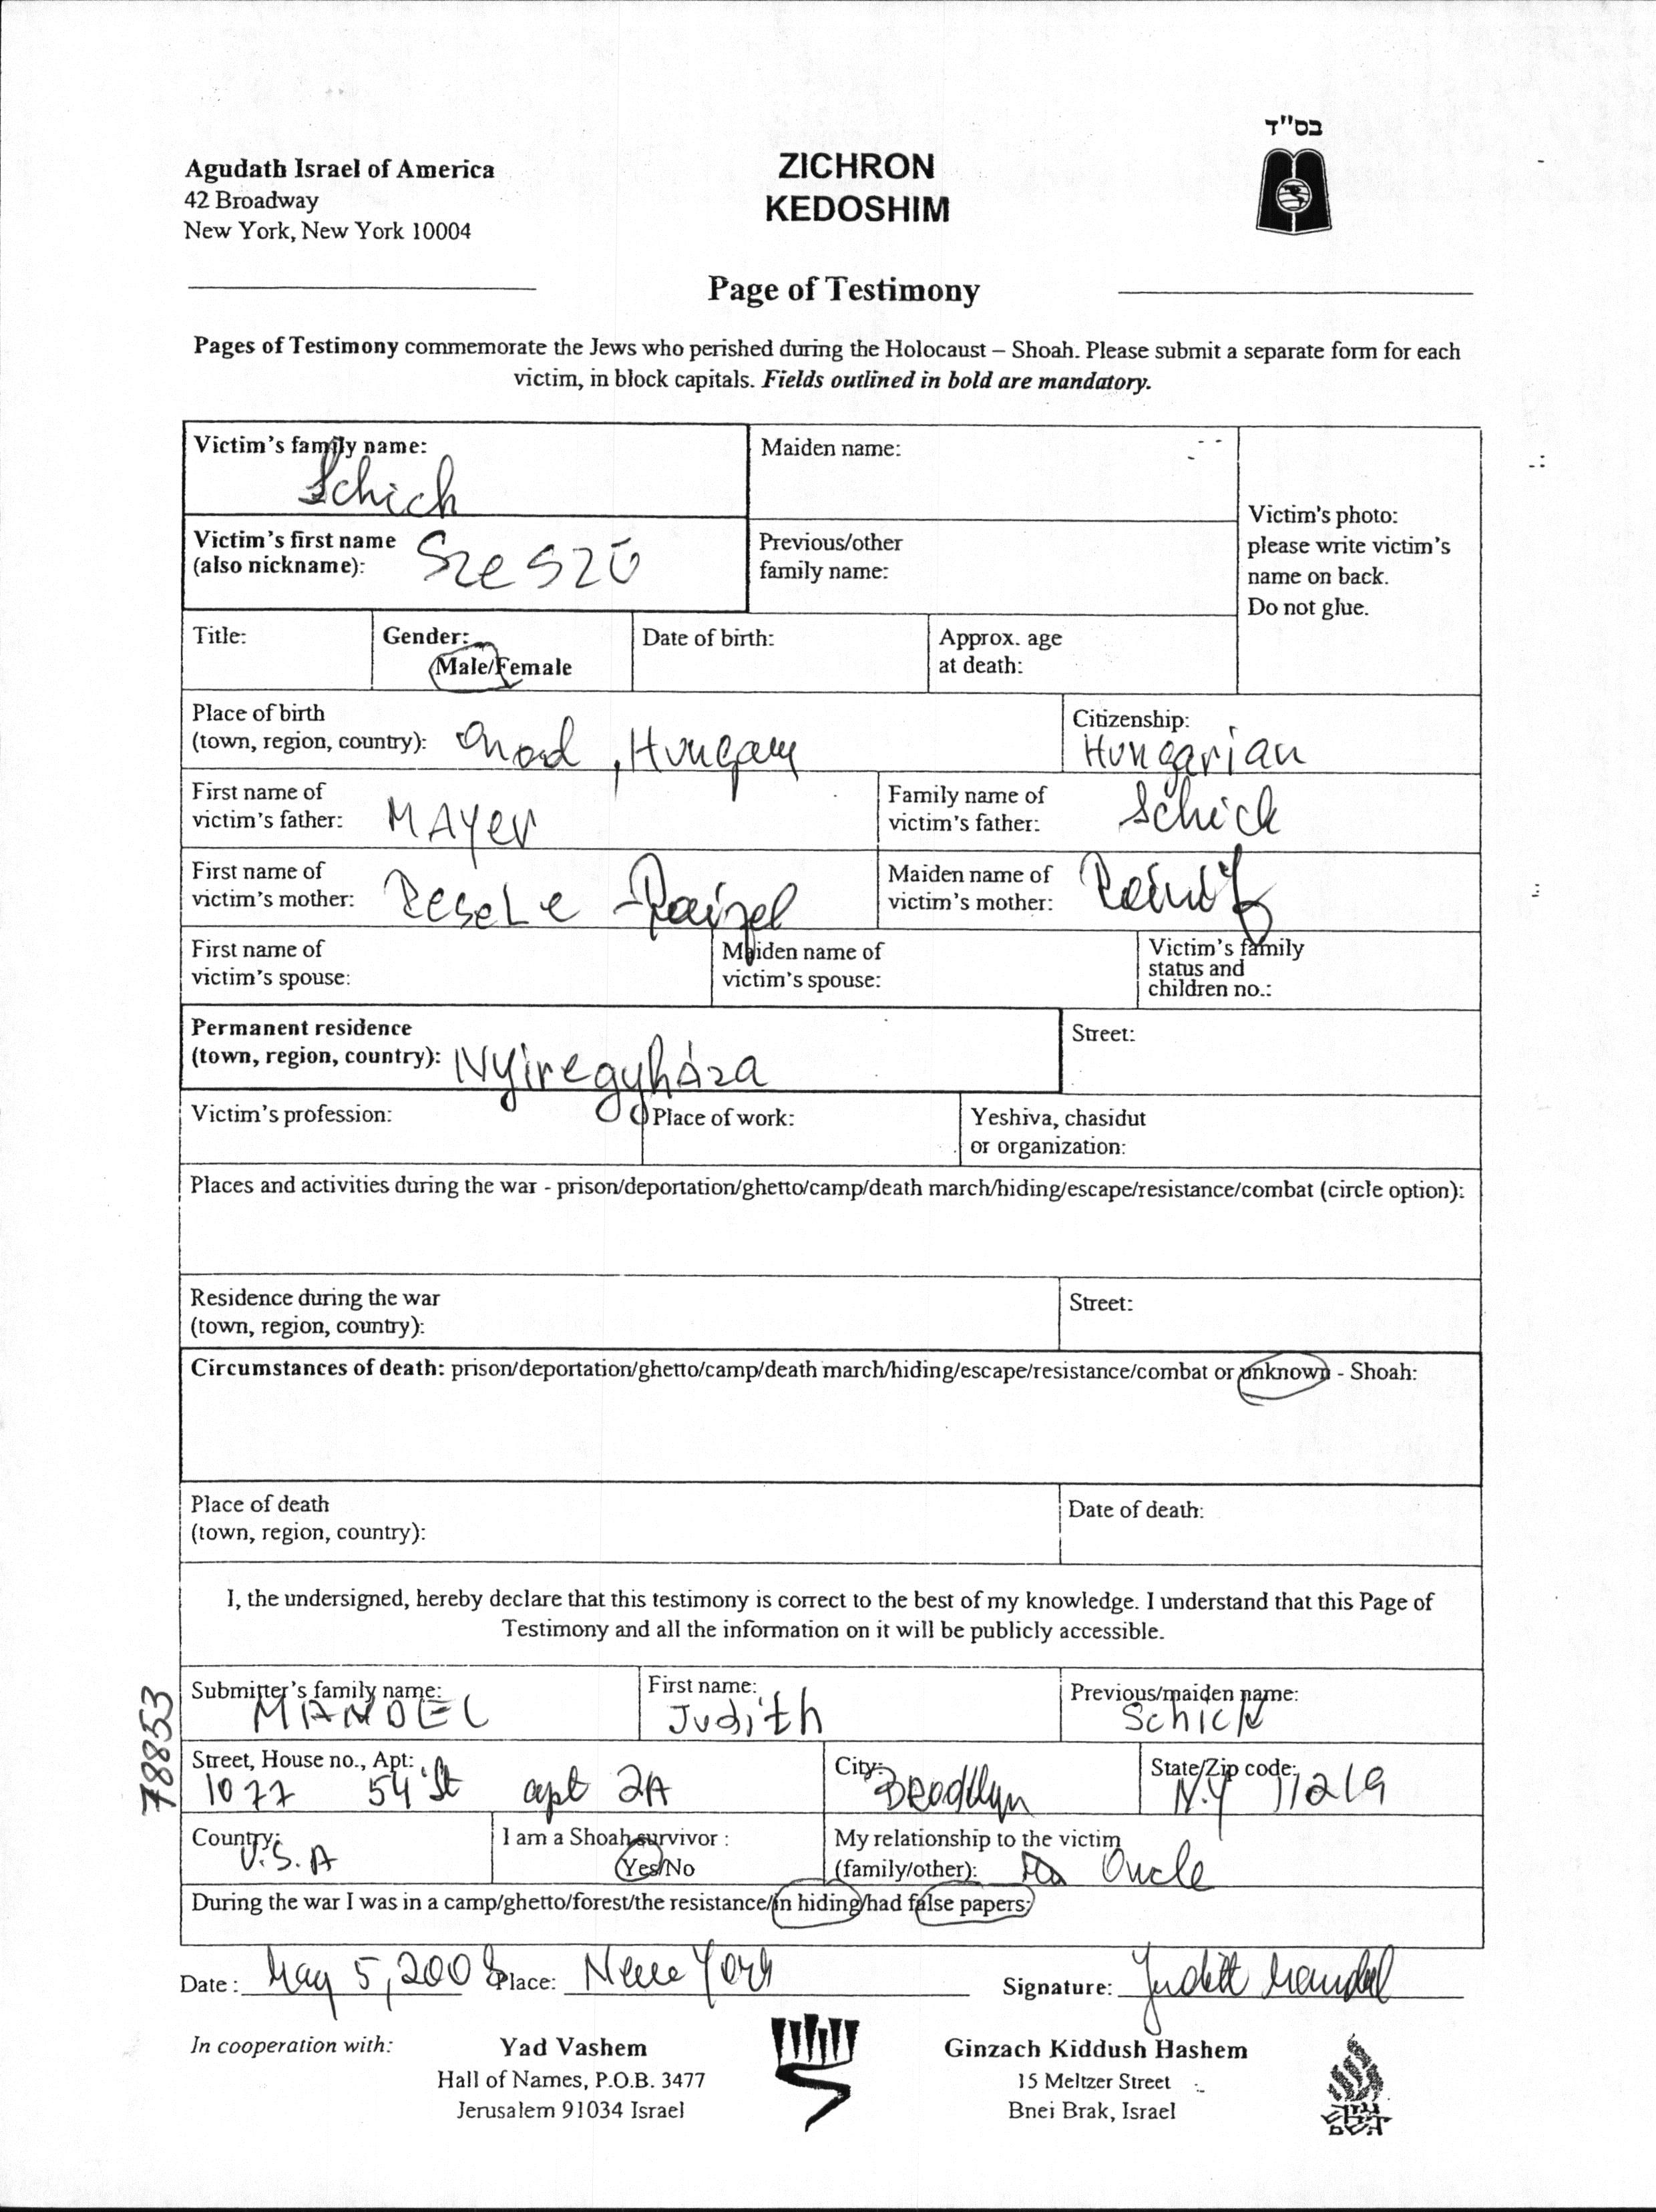 בס"ד
Agudath Israel of America
42 Broadway
New York, New York 10004
ZICHRON
KEDOSHIM
Page of Testimony
Pages of Testimony commemorate the Jews who perished during the Holocaust – Shoah. Please submit a separate form for each
victim, in block capitals. Fields outlined in bold are mandatory.
Victim's family name:
Schick
Maiden name:
Victim's photo:
please write victim's
name on back.
Do not glue.
Victim's first name
(also nickname): Szeszū
Previous/other
family name:
Title:
Gender:
Male/Female
Date of birth:
Approx. age
at death:
Place of birth
(town, region, country): Onod, Hungary
Citizenship:
Hungarian
First name of
victim's father: MAYER
Family name of
victim's father: Schick
First name of
victim's mother: Resele - Raizel
Maiden name of
victim's mother:
First name of
victim's spouse:
Maiden name of
victim's spouse:
Victim's family
status and
children no.:
Permanent residence
(town, region, country): Nyiregyháza
Street:
Victim's profession:
Place of work:
Yeshiva, chasidut
or organization:
Places and activities during the war - prison/deportation/ghetto/camp/death march/hiding/escape/resistance/combat (circle option):
Residence during the war
(town, region, country):
Street:
Circumstances of death: prison/deportation/ghetto/camp/death march/hiding/escape/resistance/combat or unknown - Shoah:
Place of death
(town, region, country):
Date of death:
I, the undersigned, hereby declare that this testimony is correct to the best of my knowledge. I understand that this Page of
Testimony and all the information on it will be publicly accessible.
78853
Submitter's family name:
MANDEL
First name:
Judith
Previous/maiden name:
Schick
Street, House no., Apt:
1077 54 St apt 2A
City:
Brooklyn
State/Zip code:
N.Y 11219
Country:
U.S.A
I am a Shoah survivor :
Yes/No
My relationship to the victim
(family/other): Uncle
During the war I was in a camp/ghetto/forest/the resistance/in hiding/had false papers:
Date: May 5, 2008 Place: New York Signature: Judith Mandel
In cooperation with:
Yad Vashem
Hall of Names, P.O.B. 3477
Jerusalem 91034 Israel
Ginzach Kiddush Hashem
15 Meltzer Street
Bnei Brak, Israel